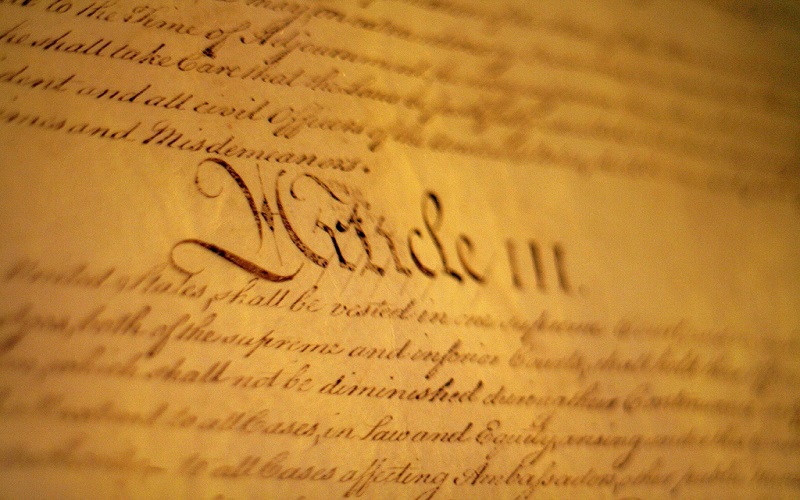 to the Time of Adjournment,
he shall take Care that the Laws be
dent and all civil Officers of the United
imes and Misdemeanors.
Article III.
United States, shall be vested in one supreme Court
dges, both of the supreme and inferior Courts, shall hold their
which shall not be diminished during their Continuance
to all Cases, in Law and Equity, arising under this
to all Cases affecting Ambassadors, other public